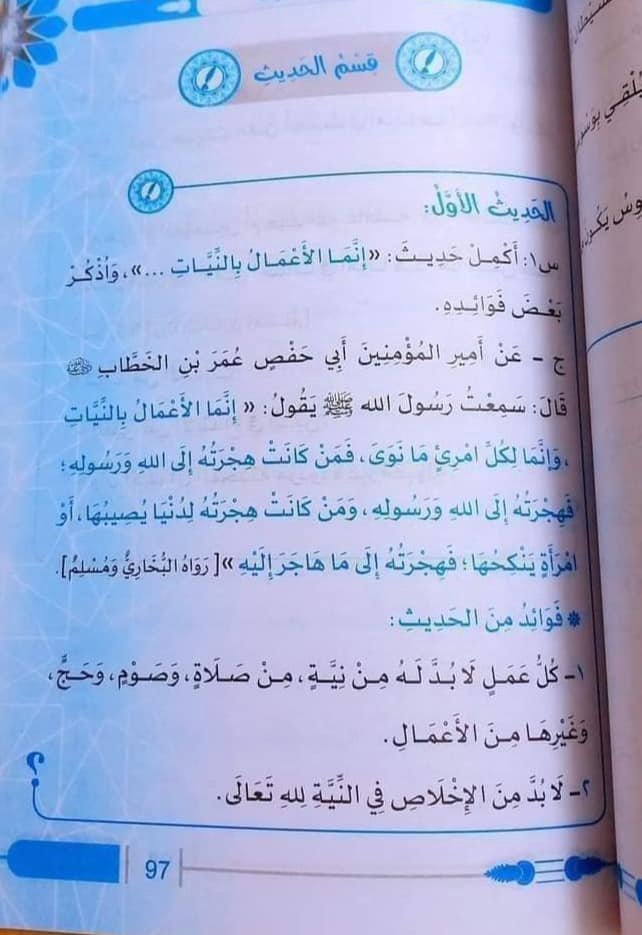 قِسْمُ الحَدِيثِ
الحَدِيثُ الأَوَّلُ:
س١: أَكْمِلْ حَدِيثَ: «إِنَّمَا الأَعْمَالُ بِالنِّيَّاتِ ...»، وَاذْكُرْ
بَعْضَ فَوَائِدِهِ.
ج - عَنْ أَمِيرِ المُؤْمِنِينَ أَبِي حَفْصٍ عُمَرَ بْنِ الخَطَّابِ
قَالَ: سَمِعْتُ رَسُولَ اللهِ ﷺ يَقُولُ: « إِنَّمَا الأَعْمَالُ بِالنِّيَّاتِ
، وَإِنَّمَا لِكُلِّ امْرِئٍ مَا نَوَى، فَمَنْ كَانَتْ هِجْرَتُهُ إِلَى اللهِ وَرَسُولِهِ؛
فَهِجْرَتُهُ إِلَى اللهِ وَرَسُولِهِ، وَمَنْ كَانَتْ هِجْرَتُهُ لِدُنْيَا يُصِيبُهَا، أَوْ
امْرَأَةٍ يَنْكِحُهَا؛ فَهِجْرَتُهُ إِلَى مَا هَاجَرَ إِلَيْهِ »[ رَوَاهُ البُخَارِيُّ وَمُسْلِمٌ].
* فَوَائِدُ مِنَ الحَدِيثِ:
١- كُلُّ عَمَلٍ لَا بُدَّ لَهُ مِنْ نِيَّةٍ، مِنْ صَلَاةٍ، وَصَوْمٍ، وَحَجٍّ،
وَغَيْرِهَا مِنَ الأَعْمَالِ.
٢- لَا بُدَّ مِنَ الإِخْلَاصِ فِي النِّيَّةِ لِلهِ تَعَالَى.
؟
97